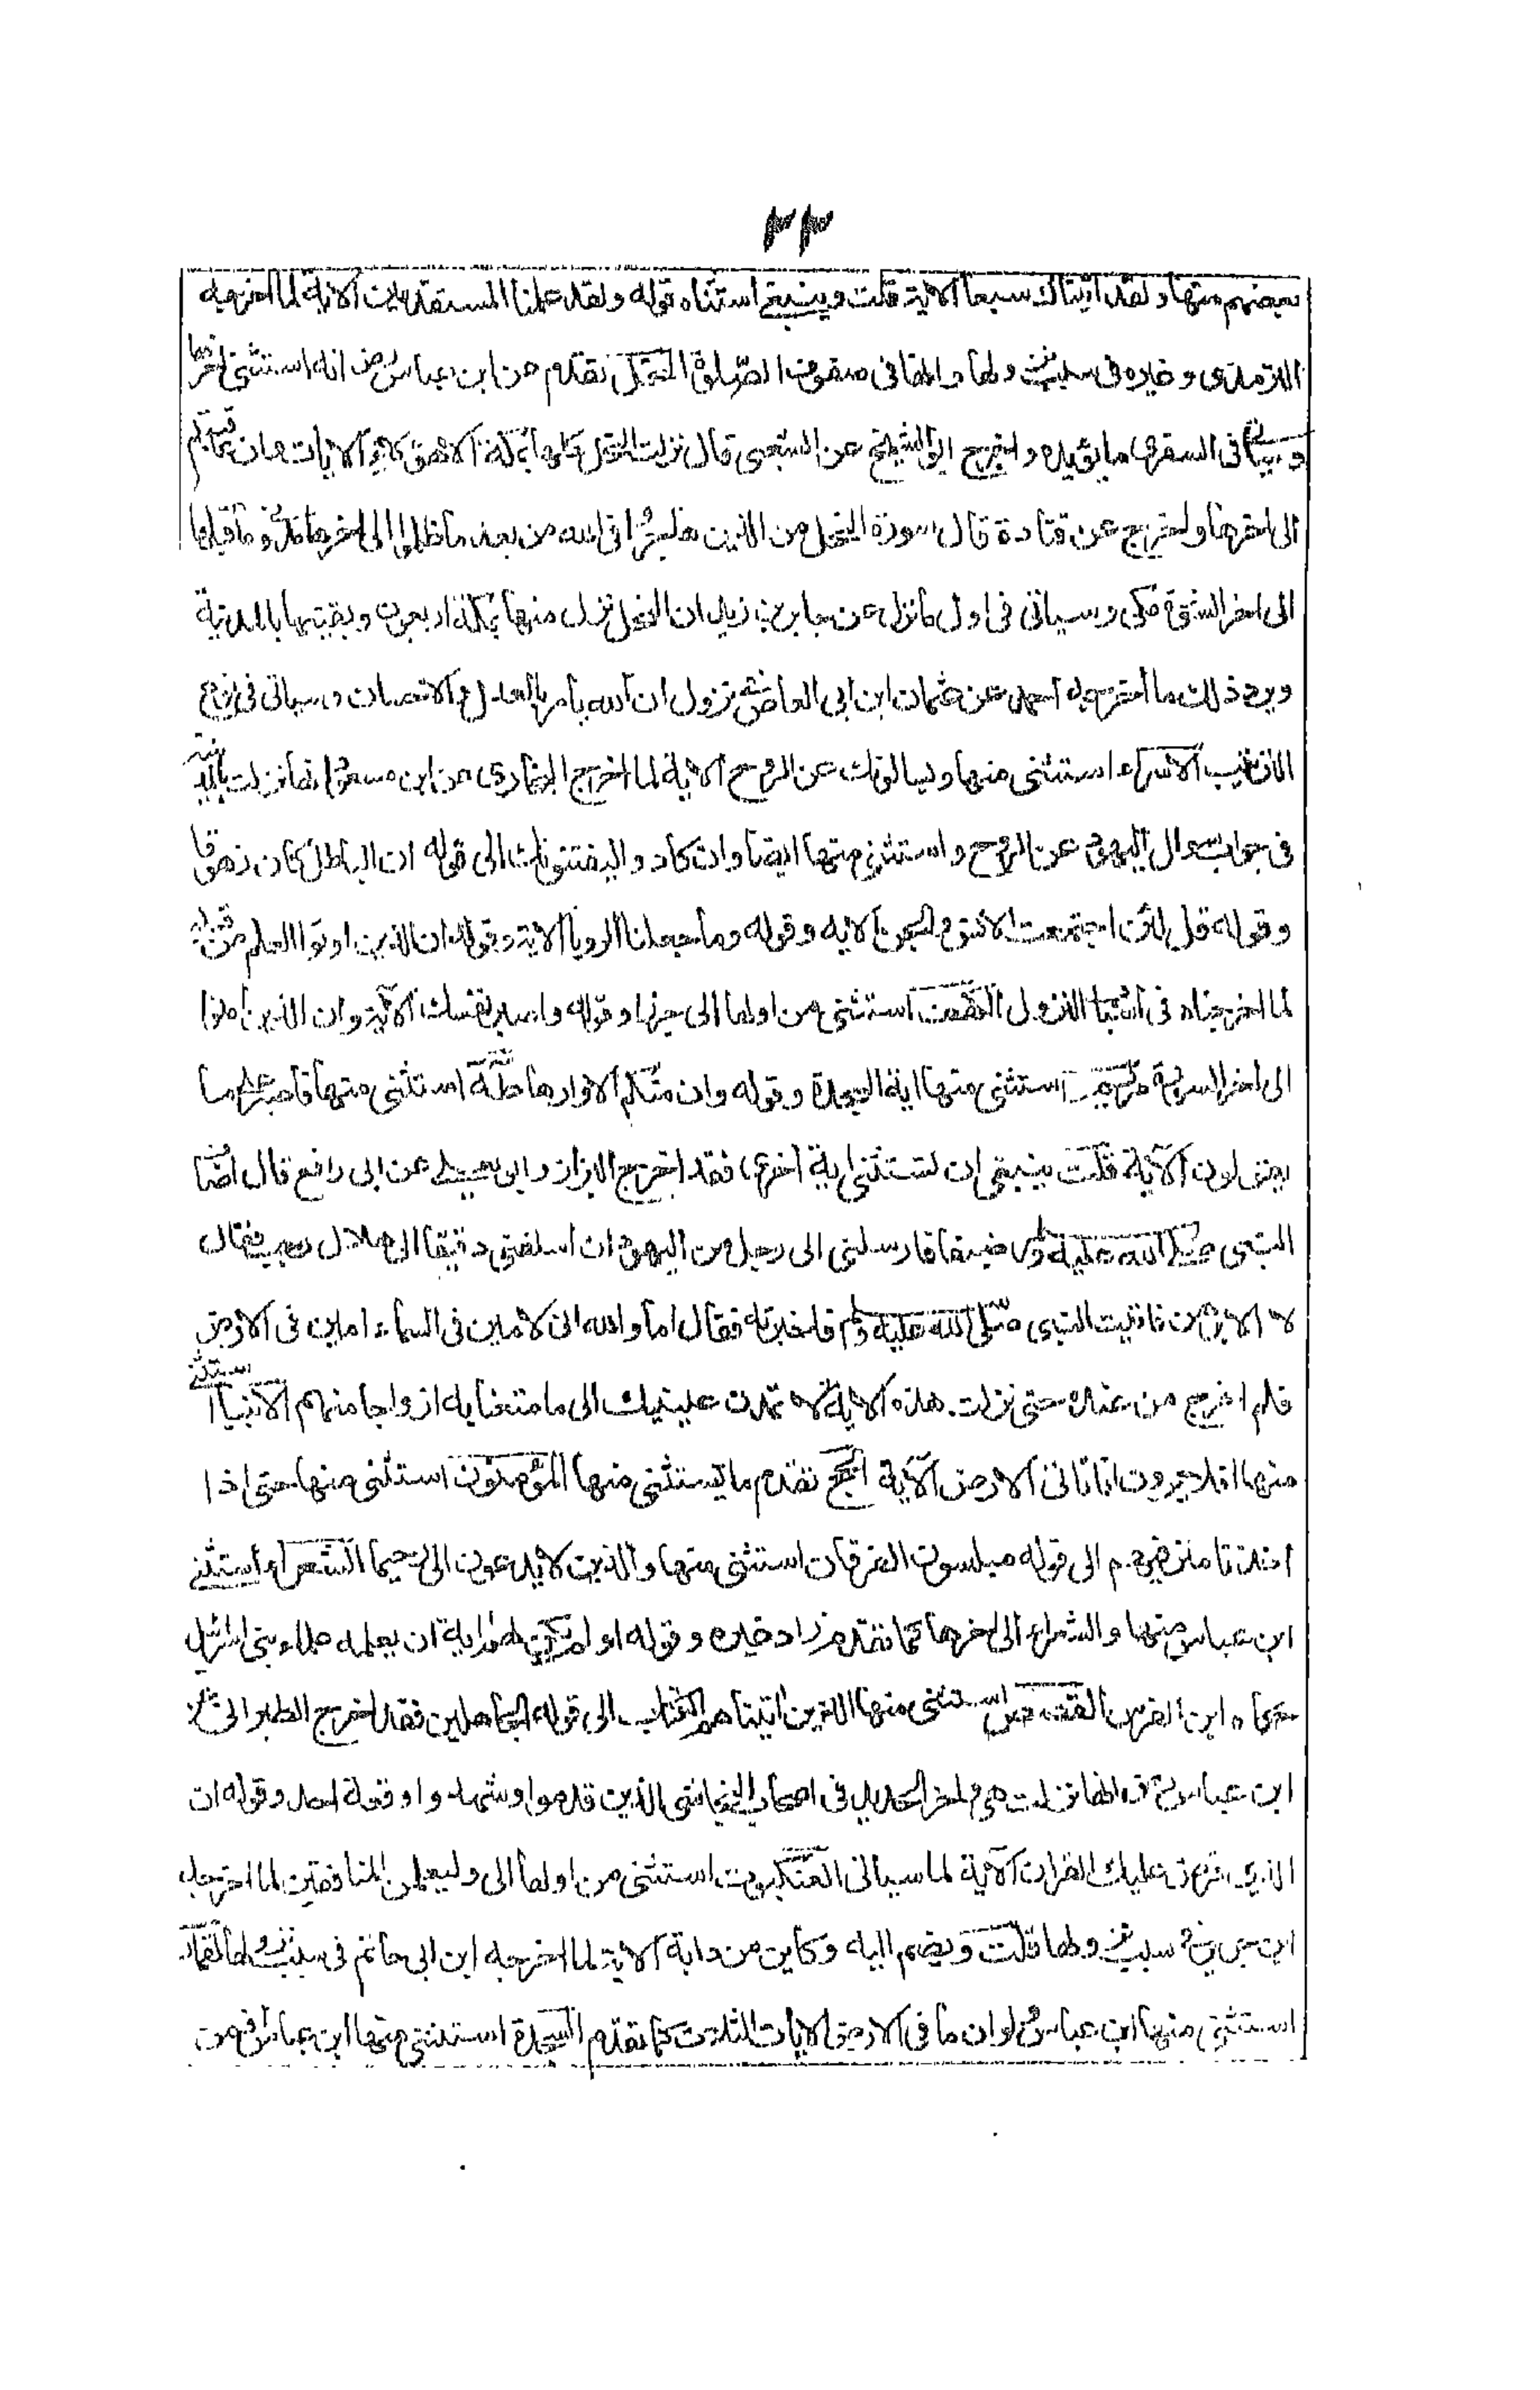 ٣٣
بعضهم منها ولقد اتيناك سبعا الاية قلت وينبغي استثناء قوله ولقد علمنا المستقدمين الاية لما اخرجه
الترمذى وغيره فى سبب نزولها وانها فى صفوف الصلوة النحل تقدم عن ابن عباس رض انه استثنى اخرها
وسياتى فى السفرى ما يؤيده واخرج ابو الشيخ عن الشعبى قال نزلت النحل كلها بمكة الا هؤلاء الايات وان عاقبتم
الى اخرها واخرج عن قتادة قال سورة النحل من الذين هاجروا فى الله من بعد ما ظلموا الى اخرها مدنى وما قبلها
الى اخر السورة مكى وسياتى فى اول ما نزل عن جابر بن زيد ان النحل نزل منها بمكة اربعون وبقيتها بالمدينة
ويرد ذلك ما اخرجه احمد عن عثمان ابن ابى العاص فى نزول ان الله يأمر بالعدل والاحسان وسياتى فى نوع
الفراشى الاسراء استثنى منها ويسالونك عن الروح الاية لما اخرج البخارى عن ابن مسعود انها نزلت بالمدينة
فى جواب سوال اليهود عن الروح واستثنى منها ايضا وان كادوا ليفتنونك الى قوله ان الباطل كان زهوقا
وقوله قل لئن اجتمعت الانس والجن الايه وقوله وما جعلنا الرويا الاية وقوله ان الذين اوتوا العلم من قبله
لما اخرجناه فى اسباب النزول الكهف استثنى من اولها الى جرزا وقوله واصبر نفسك الآية وان الذين امنوا
الى اخر السورة مريم استثنى منها اية السجدة وقوله وان منكم الا واردها طه استثنى منها فاصبر على ما
يقولون الآية قلت ينبغى ان تستثنى اية اخرى فقد اخرج البزار وابو يعلى عن ابى رافع قال اضاف
النبى صلى الله عليه وسلم ضيفا فارسلنى الى رجل من اليهود ان اسلفنى دقيقا الى هلال رجب فقال
لا الا برهن فاتيت النبى صلى الله عليه وسلم فاخبرته فقال اما والله انى لامين فى السماء امين فى الارض
فلم اخرج من عنده حتى نزلت هذه الاية لا تمدن عينيك الى ما متعنا به ازواجا منهم الانبياء استثنى
منها افلا يرون انا ناتى الارض الآية الحج تقدم ما يستثنى منها المؤمنون استثنى منها حتى اذا
اخذنا مترفيهم الى قوله مبلسون الفرقان استثنى منها والذين لا يدعون الى رحيما الشعراء استثنى
ابن عباس منها والشعراء الى اخرها كما تقدم زاد غيره وقوله او لم يكن لهم اية ان يعلمه علماء بنى اسرائيل
حكاه ابن الفرس القصص استثنى منها الذين اتيناهم الكتاب الى قوله الجاهلين فقد اخرج الطبرانى عن
ابن عباس رض انها نزلت هى واخر الحديد فى اصحاب النجاشى الذين قدموا وشهدوا وقعة احد وقوله ان
الذى فرض عليك القران الآية لما سياتى العنكبوت استثنى من اولها الى وليعلمن المنافقين لما اخرجه
ابن جرير فى سبب نزولها قلت ويضم اليه وكاين من دابة الاية لما اخرجه ابن ابى حاتم فى سبب نزولها لقمان
استثنى منها ابن عباس ولو ان ما فى الارض الايات الثلاث كما تقدم السجدة استثنى منها ابن عباس افمن